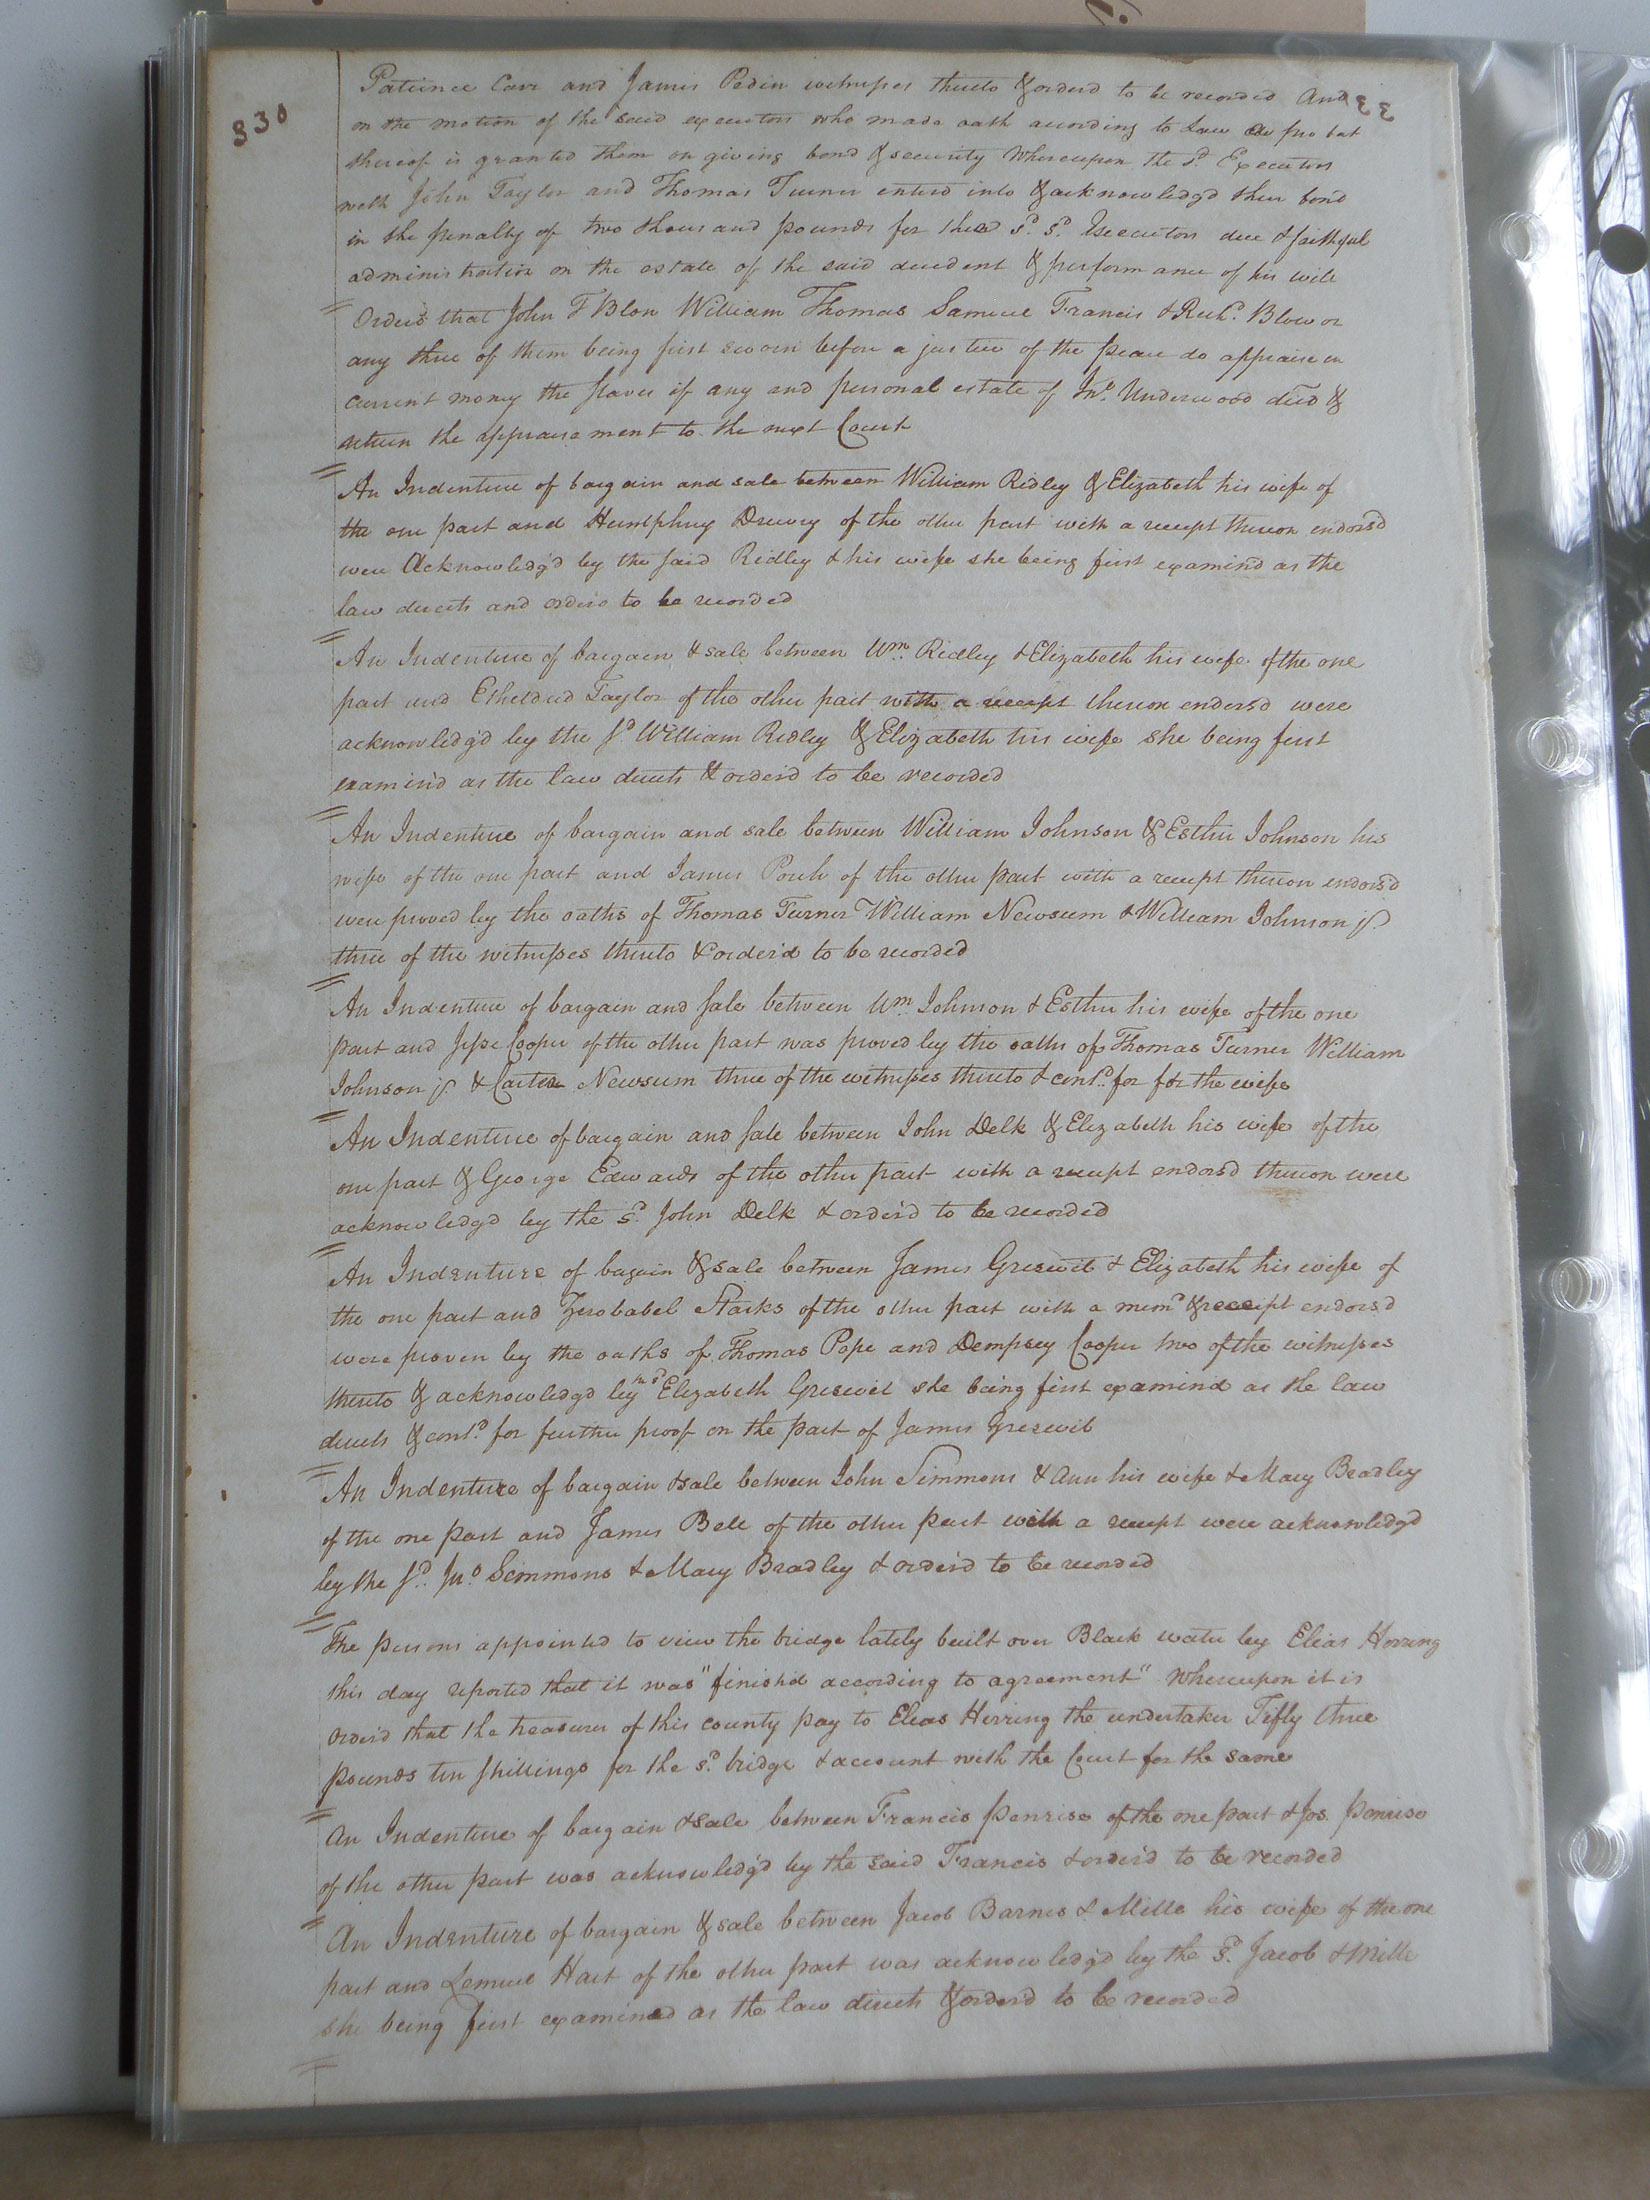 330
Patience Carr and James Pedin witnesses thereto & orderd to be recorded And
on the motion of the said executors who made oath according to Law a probat
thereof is granted them on giving bond & security Whereupon the sd. Executors
with John Taylor and Thomas Turner enterd into & acknowledg'd their bond
in the penalty of two thousand pounds for the sd. sd. Executors due & faithful
administration on the estate of the said decedent & performance of his will
Orderd that John T Blow William Thomas Samuel Francis & Richd. Blow or
any three of them being first sworn before a justice of the peace do appraise in
current money the slaves if any and personal estate of Jno. Underwood decd &
return the appraisement to the next Court
An Indenture of bargain and sale between William Ridley & Elizabeth his wife of
the one part and Humphrey Drewry of the other part with a receipt thereon endorsd
were Acknowledg'd by the said Ridley & his wife she being first examin'd as the
law directs and orderd to be recorded
An Indenture of bargain & sale between Wm. Ridley & Elizabeth his wife of the one
part and Etheldred Taylor of the other part with a receipt thereon endorsd were
acknowledg'd by the sd William Ridley & Elizabeth his wife she being first
examin'd as the law directs & order'd to be recorded
An Indenture of bargain and sale between William Johnson & Esther Johnson his
wife of the one part and James Porch of the other part with a receipt thereon endors'd
were proved by the oaths of Thomas Turner William Newsum & William Johnson jr.
three of the witnesses thereto & order'd to be recorded
An Indenture of bargain and sale between Wm. Johnson & Esther his wife of the one
part and Jesse Cooper of the other part was proved by the oaths of Thomas Turner William
Johnson jr. & Carter Newsum three of the witnesses thereto & contd. for for the wife
An Indenture of bargain and sale between John Delk & Elizabeth his wife of the
one part & George Edwards of the other part with a receipt endorsd thereon were
acknowledg'd by the sd. John Delk & order'd to be recorded
An Indenture of bagain & sale between James Greswit & Elizabeth his wife of
the one part and Zerobabel Starks of the other part with a memd. & receipt endorsd
were proven by the oaths of Thomas Pope and Dempsey Cooper two of the witnesses
thereto & acknowledgd by the sd Elizabeth Greswit she being first examind as the law
directs & contd. for further proof on the part of James Greswit
An Indenture of bargain & sale between John Simmons & Ann his wife & Mary Bradley
of the one part and James Bell of the other part with a receipt were acknowledgd
by the sd. Jno. Simmons & Mary Bradley & order'd to be recorded
The persons appointed to view the bridge lately built over Black water by Elias Herring
this day reported that it was "finishd according to agreement" Whereupon it is
Orderd that the treasurer of this county pay to Elias Herring the undertaker Fifty three
pounds ten shillings for the sd. bridge & account with the Court for the same
An Indenture of bargain & sale between Francis Penrise of the one part & Jos. Penrise
of the other part was acknowledg'd by the said Francis & order'd to be recorded
An Indenture of bargain & sale between Jacob Barnes & Mille his wife of the one
part and Lemuel Hart of the other part was acknowledg'd by the sd. Jacob & Mille
she being first examined as the law directs & orderd to be recorded